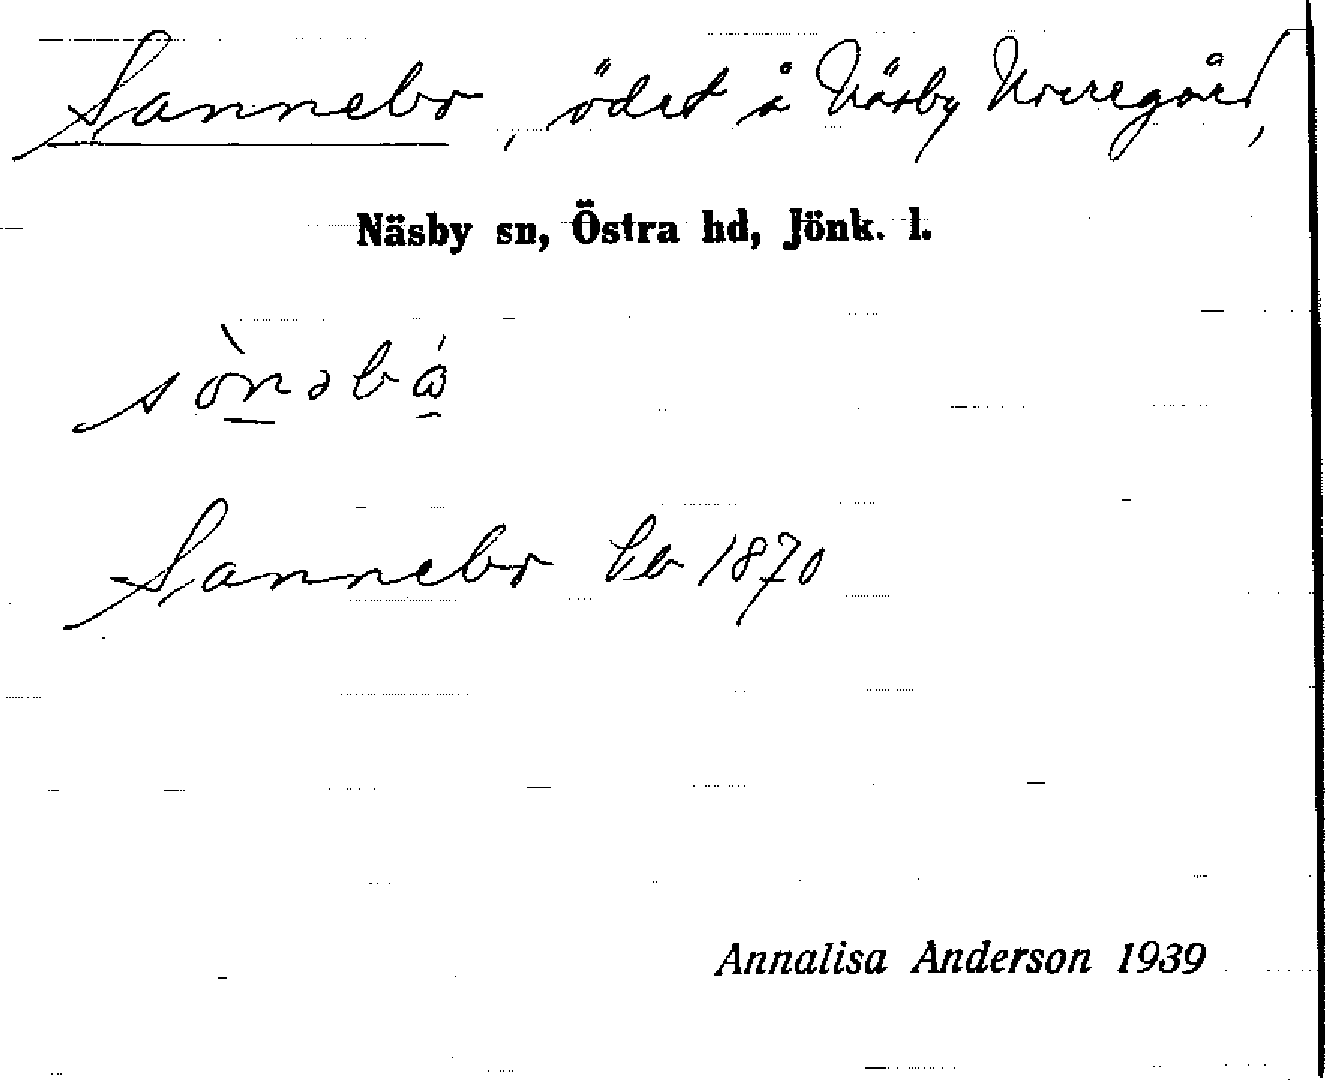 Sannebo, ödet å Näsby Norregård,
Näsby sn, Östra hd, Jönk. l.
sònəbó
Sannebo hb 1870
Annalisa Anderson 1939